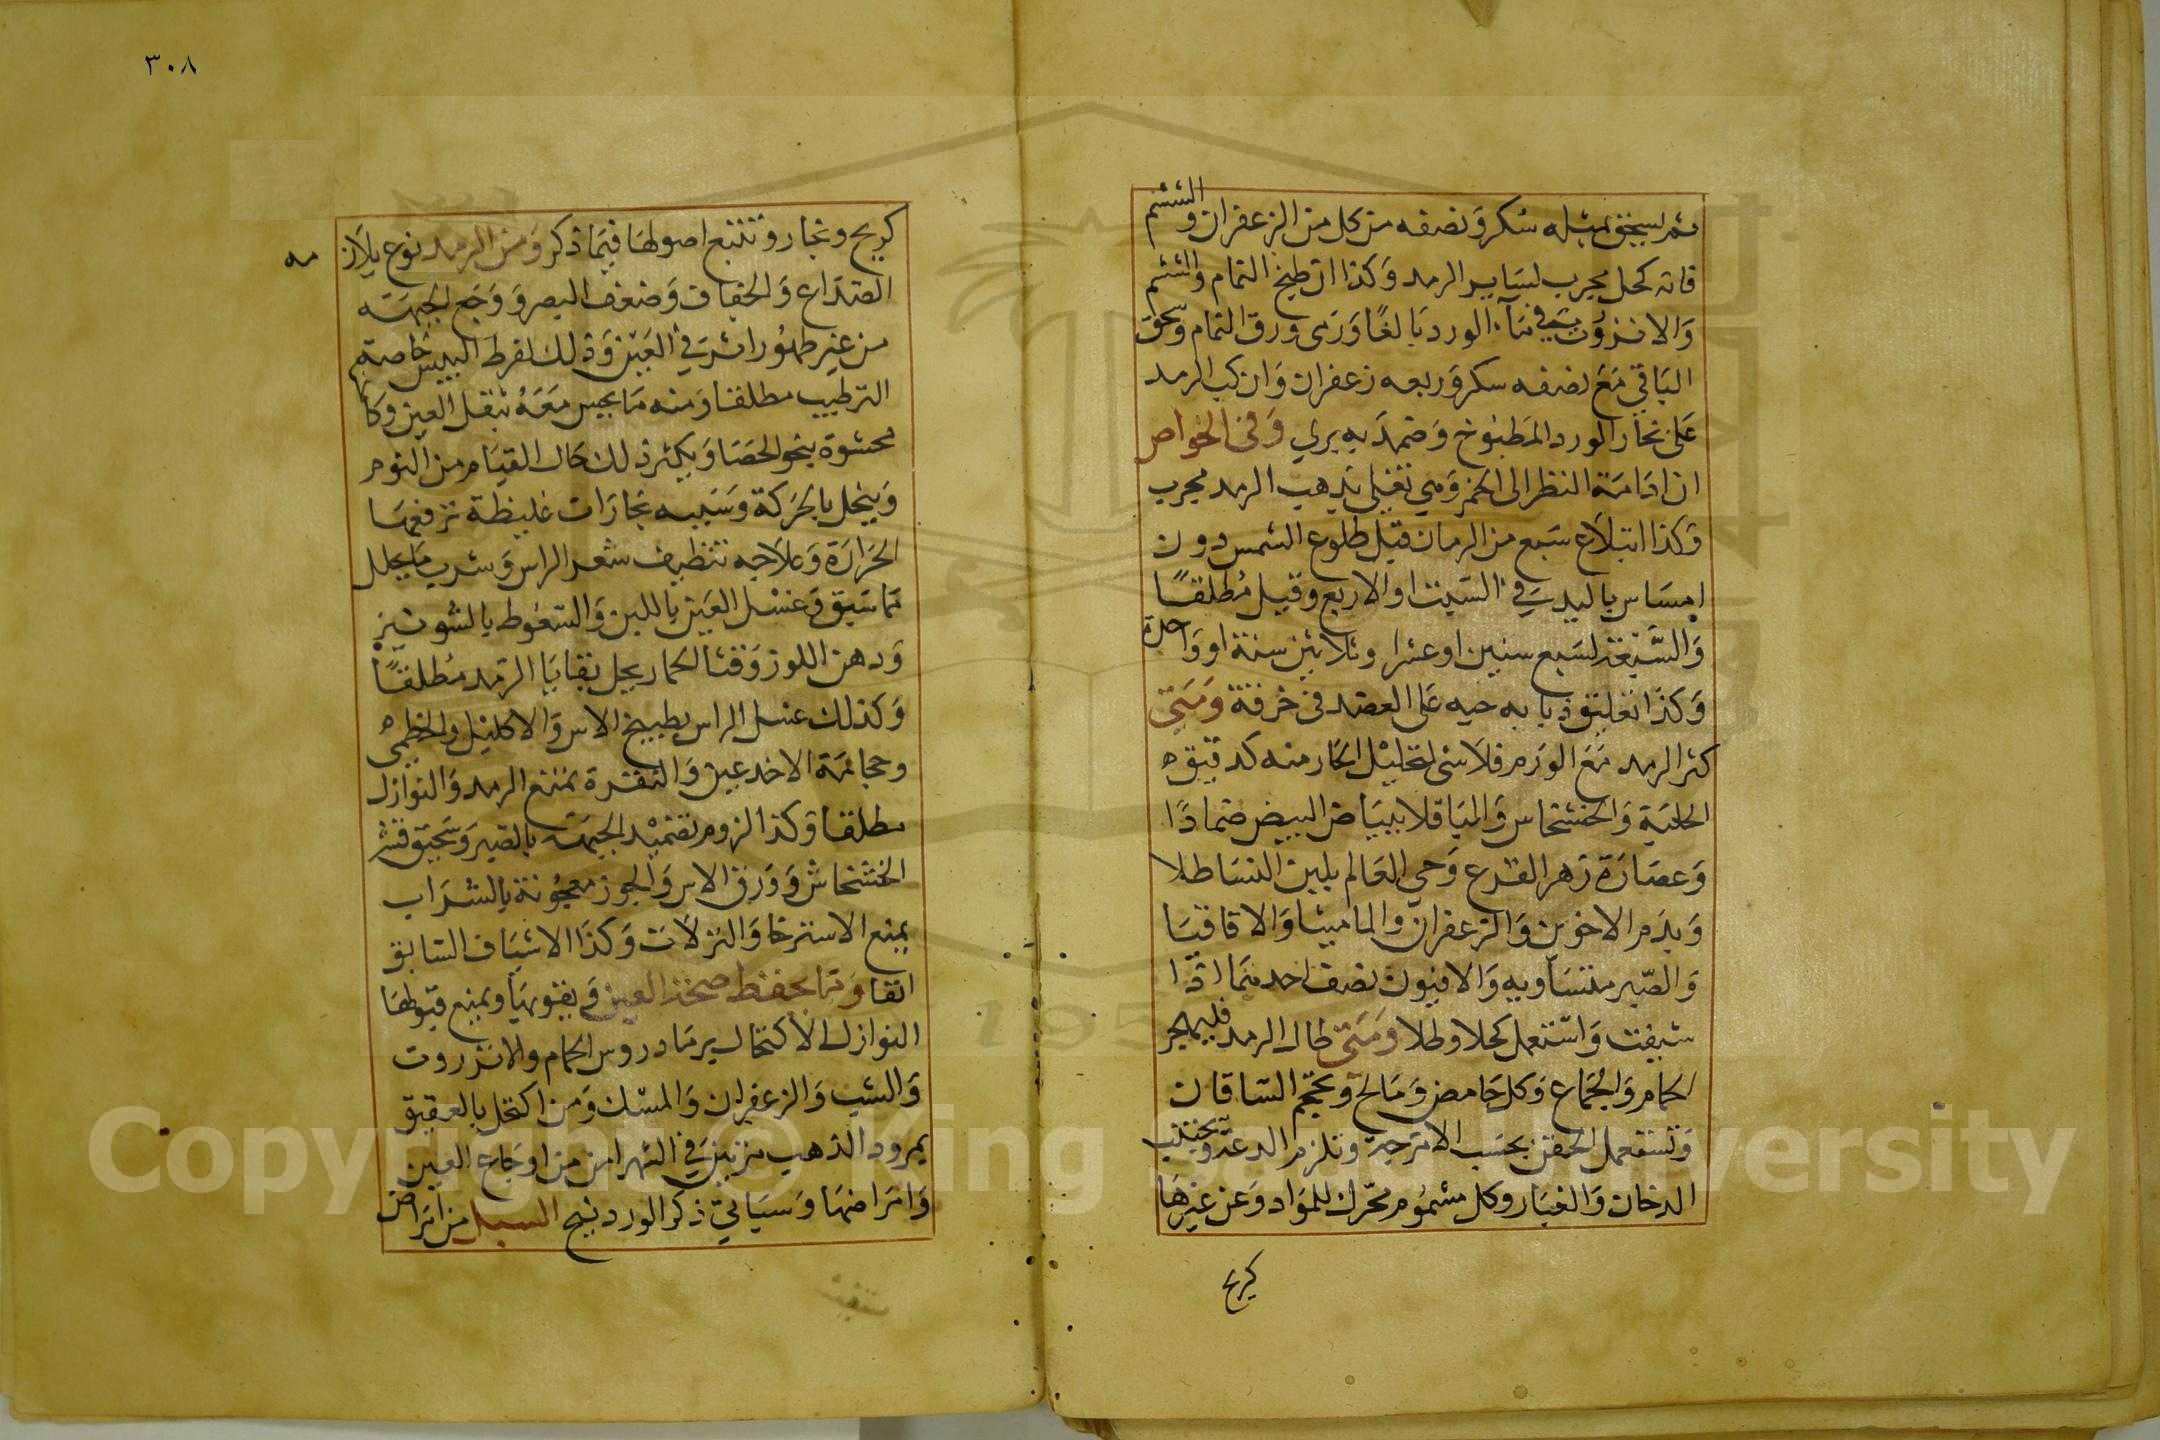 ثم يسحق بمثله سكر ونصفه من كل من الزعفران والششم
فانه كحل مجرب لساير الرمد وكذا ان طبخ النمام والششم
والانزروت في مآء الورد بالغا ورمى ورق النمام وسحق
الباقي مع نصفه سكر وربعه زعفران وان كب الرمد
على بخار الورد المطبوخ وضمد به بري وفى الخواص
ان ادامة النظر الى الخمر وهي تغلي يذهب الرمد مجرب
وكذا ابتلاع سبع من الرمان قبل طلوع الشمس دون
امساس باليد في السبت او الاربع وقيل مطلقًا
والسبعة لسبع سنين او عشرا وثلاثين سنة او واحدة
وكذا تعليق ذبابه حيه على العضد فى خرقة ومتى
كثر الرمد مع الورم فلا شى لتحليل الحار منه كدقيق
الحلبة والخشخاش والباقلا ببياض البيض ضمادًا
وعصارة زهر القرع وحي العالم بلبن النسا طلا
وبدم الاخوين والزعفران والماميثا والاقاقيا
والصبر متساويه والافيون نصف احدهما اذا
شيفت واستعمل كحلا وطلا ومتى طال الرمد فليهجر
الحمام والجماع وكل حامض ومالح وتحجم الساقان
وتستعمل الحقن بحسب الامزجة وتلزم الدعة وتجتنب
الدخان والغبار وكل مشموم محرك للمواد وعن غيرها
كريح
٣٠٨
كريح وبخار وتتبع اصولها فيما ذكر ومن الرمد نوع يلاز
مه
الصداع والجفاف وضعف البصر ووجع الجبهة
من غير ظهور اثر في العين وذلك لفرط اليبس خاصة
الترطيب مطلقا ومنه ما يحس معه بثقل العين وكانها
محشوة بنحو الحصا ويكثر ذلك حال القيام من النوم
وينحل بالحركة وسببه بخارات غليظة ترفعها
الحرارة وعلاجه تنظيف شعر الراس وشرب ما يحلل
مما سبق وغسل العين باللبن والسعوط بالشونيز
ودهن اللوز وقثا الحمار يحل بقايا الرمد مطلقًا
وكذلك غسل الراس بطبيخ الاس والاكليل والخطمى
وحجامة الاخدعين والنقرة يمنع الرمد والنوازل
مطلقا وكذا لزوم تضميد الجبهة بالصبر وسحيق قشر
الخشخاش وورق الاس والجوز معجونة بالشراب
يمنع الاسترخا والنزلات وكذا الاشياف السابق
انفا ومما يحفظ صحة العين ويقويها ويمنع قبولها
النوازل الاكتحال برماد روس الحمام والانزروت
والشب والزعفران والمسك ومن اكتحل بالعقيق
بمرود الذهب مرتين في الشهر امن من اوجاع العين
وامراضها وسياتي ذكر الوردينج السبل من امراض